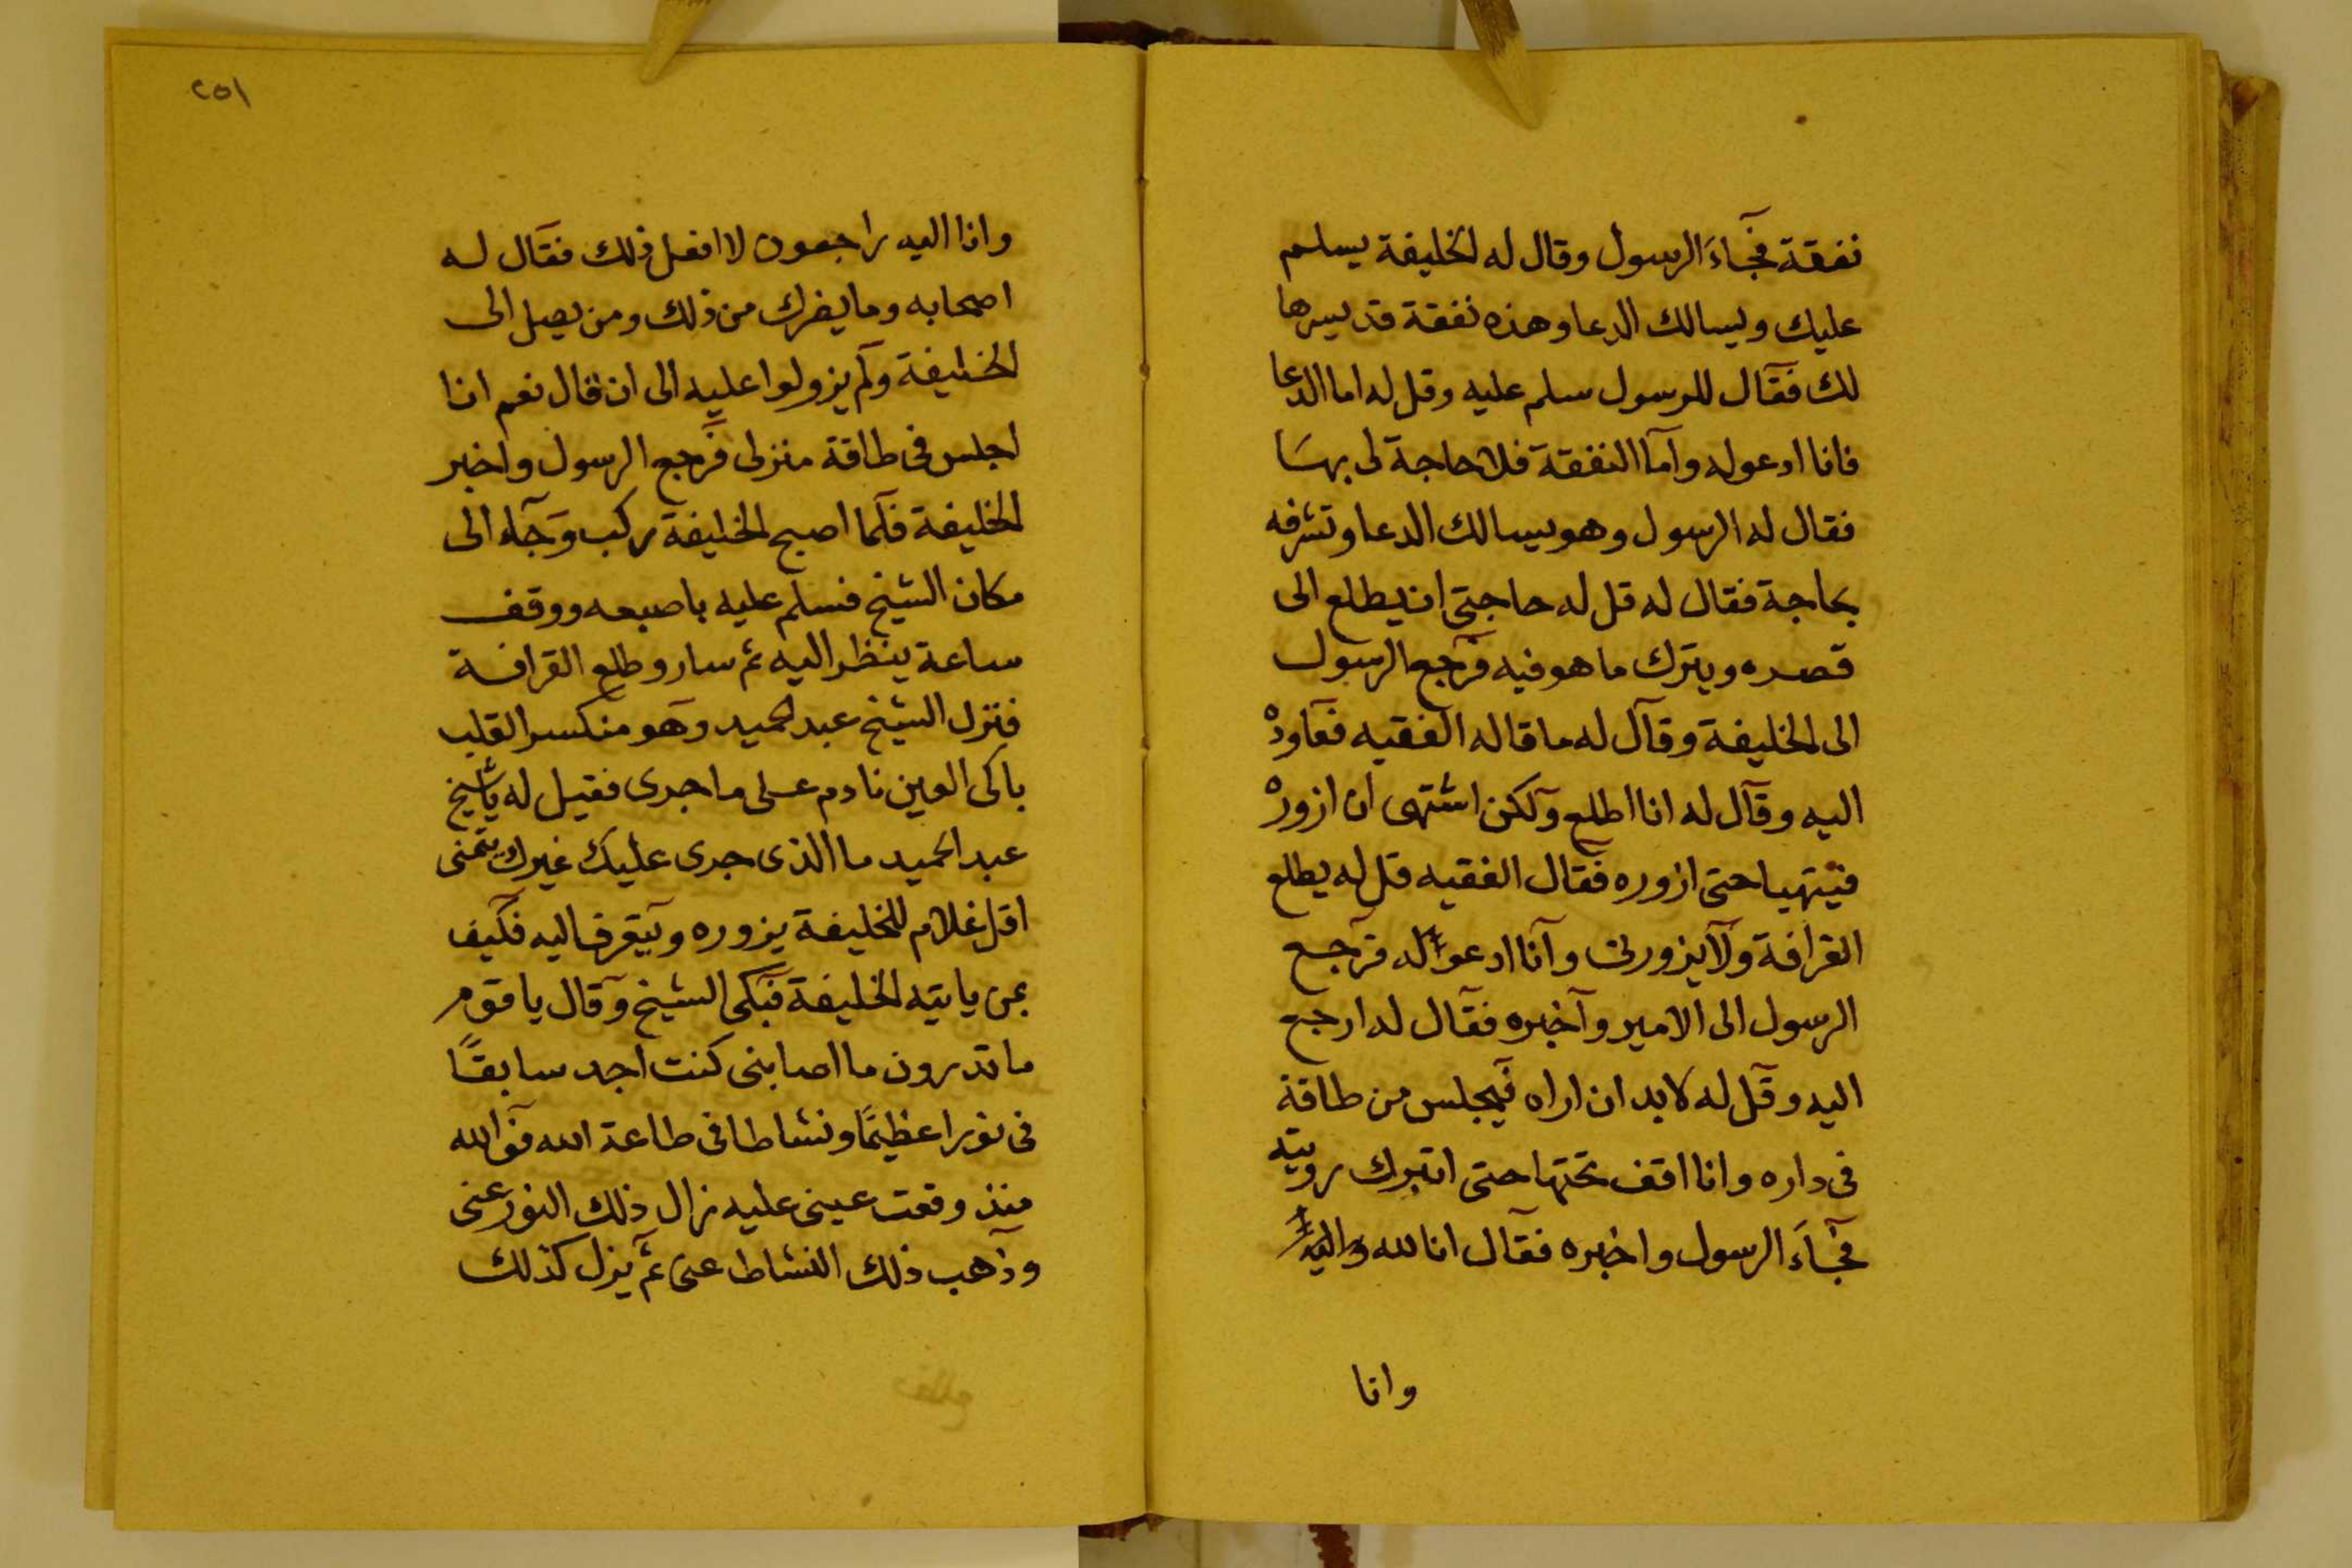 نفقة فجاءَ الرسول وقال له الخليفة يسلم
عليك ويسالك الدعا وهذه نفقة قد يسرها
لك فقال للرسول سلم عليه وقل له اما الدعا
فانا ادعوله واما النفقة فلا حاجة لى بها
فقال له الرسول وهو يسالك الدعا وتشرفه
بحاجة فقال له قل له حاجتى ان يطلع الى
قصره ويترك ما هو فيه فرجع الرسول
الى الخليفة وقال له ما قاله الفقيه فعاوده
اليه وقال له انا اطلع ولكن اشتهى ان ازوره
حتى ازوره فقال الفقيه قل له يطلع
القرافة ولا يزورنى وانا ادعوا له فرجع
الرسول الى الامير واخبره فقال له ارجع
اليه وقل له لا بد ان اراه فيجلس من طاقة
فى داره وانا اقف تحتها حتى اتبرك رويته
فجاءَ الرسول واخبره فقال انا لله
وانا
٢٥١
وانا اليه راجعون لا افعل ذلك فقال له
اصحابه وما يضرك من ذلك ومن يصل الى
الخليفة ولم يزولوا عليه الى ان قال نعم انا
اجلس فى طاقة منزلى فرجع الرسول واخبر
الخليفة فلما اصبح الخليفة ركب وجاء الى
مكان الشيخ فسلم عليه باصبعه ووقف
ساعة ينظر اليه ثم سار وطلع القرافة
فنزل الشيخ عبد الحميد وهو منكسر القلب
باكى العين نادم على ما جرى فقيل له يا شيخ
عبد الحميد ما الذى جرى عليك غيرك يتمنى
اقل غلام للخليفة يزوره ويتعرف اليه فكيف
بمن ياتيه الخليفة فبكى الشيخ وقال يا قوم
ما تدرون ما اصابنى كنت اجد سابقًا
فى نورا عظيمًا ونشاطا فى طاعة الله فوالله
منذ وقعت عينى عليه زال ذلك النور عنى
وذهب ذلك النشاط عنى ثم يزل كذلك